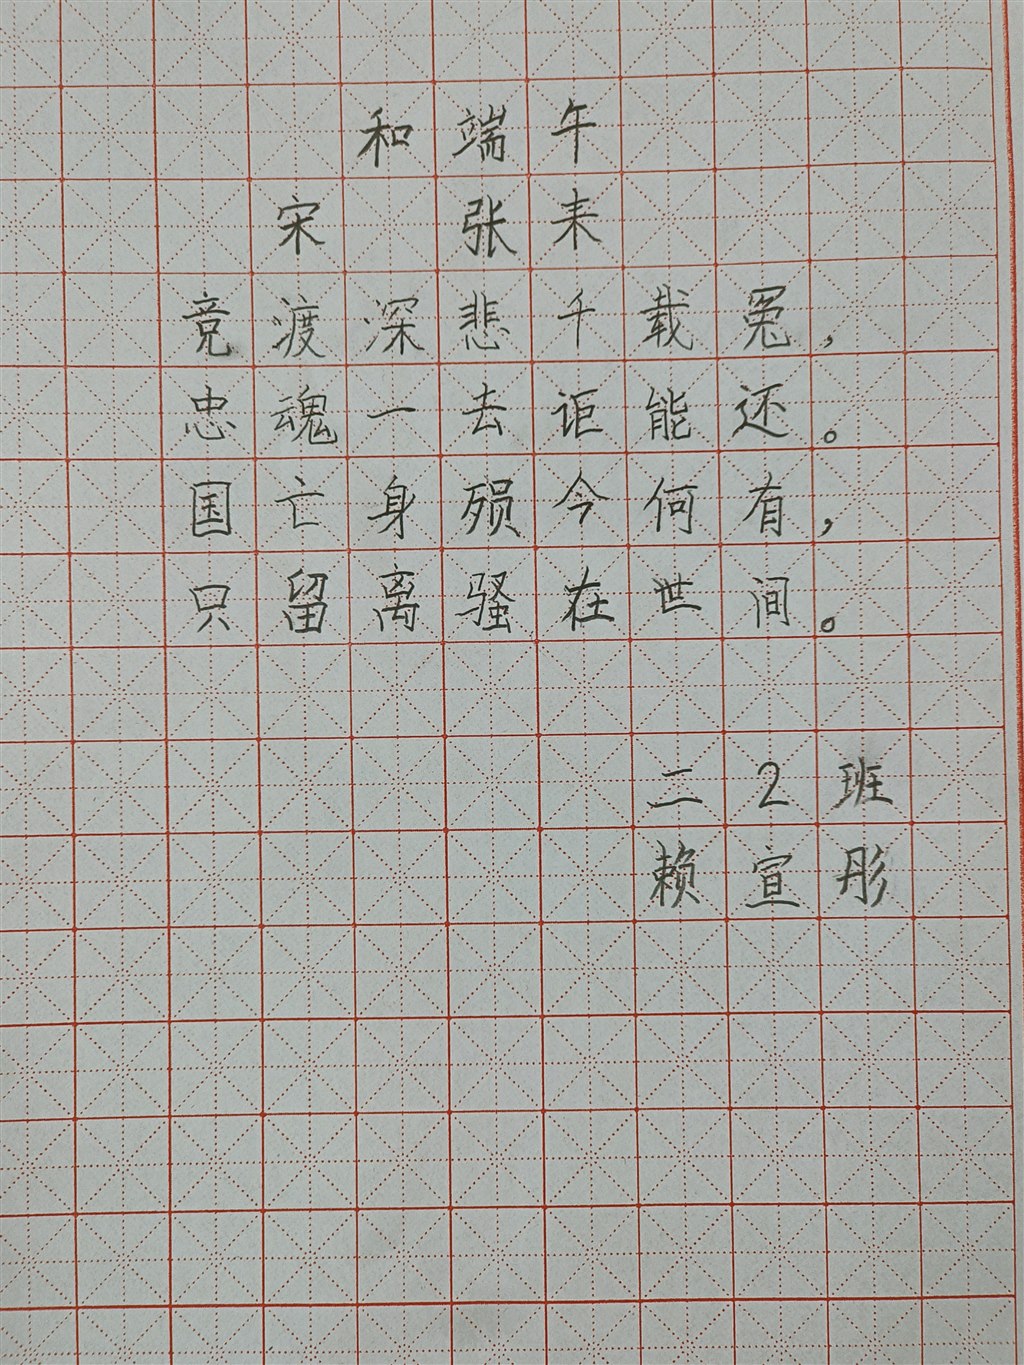 和端午
宋 张耒
竞渡深悲千载冤，
忠魂一去讵能还。
国亡身殒今何有，
只留离骚在世间。
二2班
赖宣彤